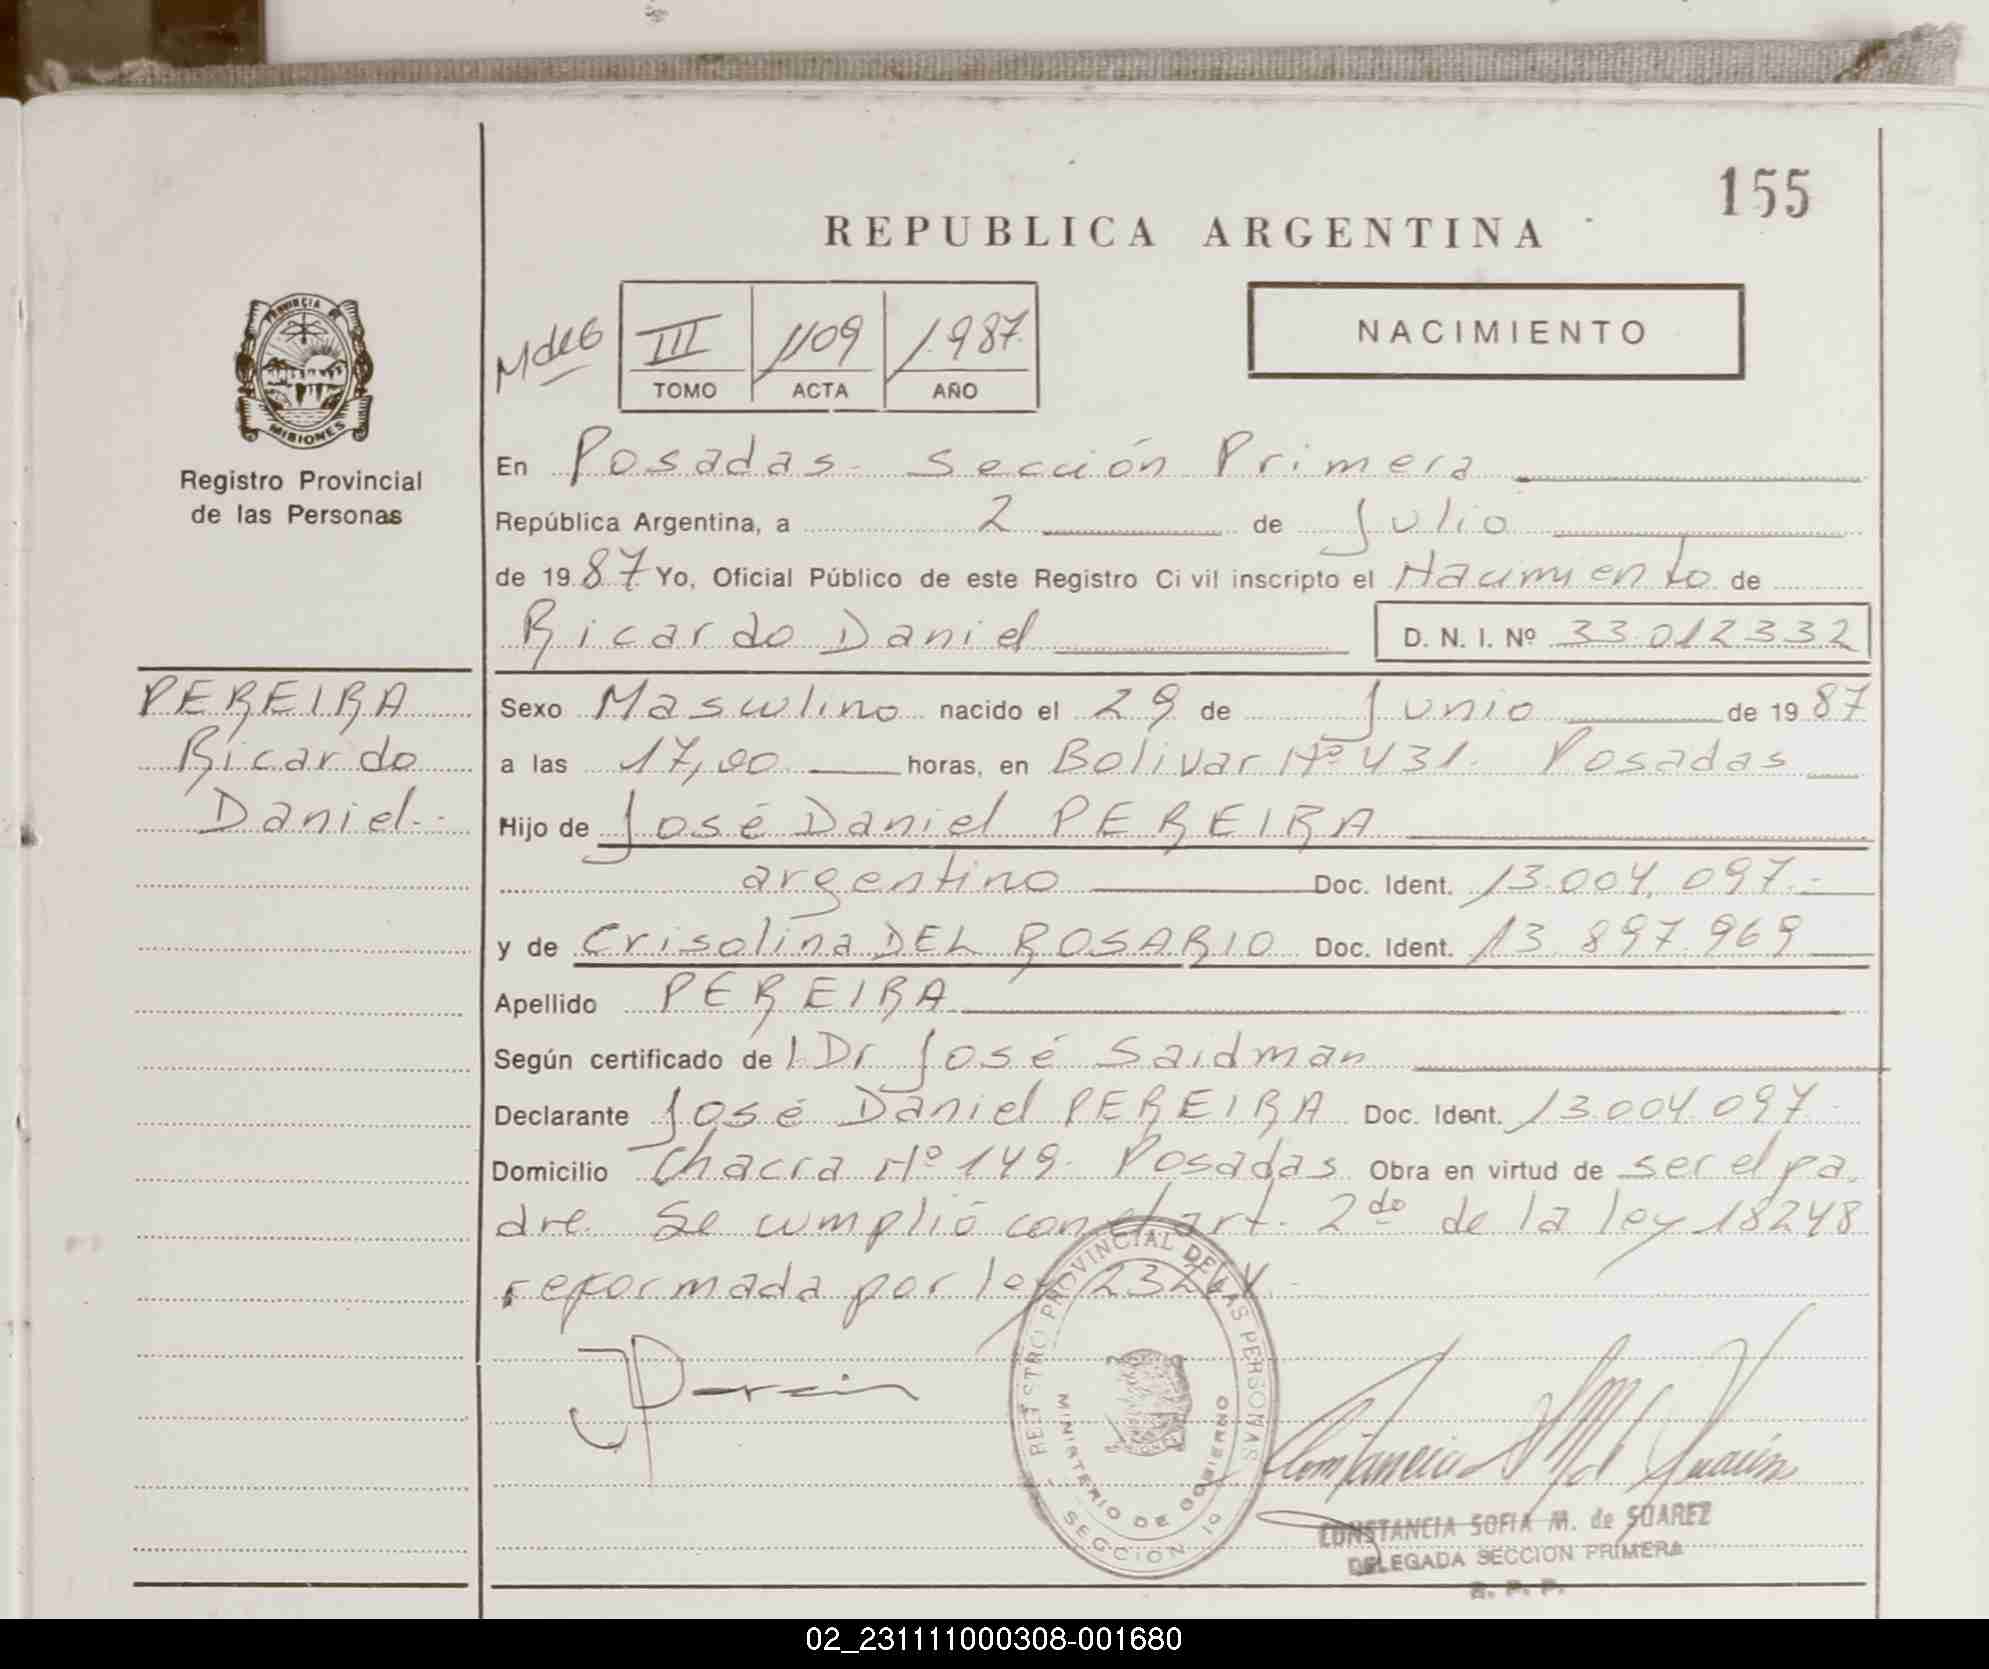 155
REPUBLICA ARGENTINA
NACIMIENTO
III 1109 1.987.
TOMO ACTA AÑO
PROVINCIA
MISIONES
Registro Provincial
de las Personas
En Posadas - Sección Primera
República Argentina, a 2 de Julio
de 1987 Yo, Oficial Público de este Registro Ci vil inscripto el Nacimiento de
Ricardo Daniel D. N. I. Nº 33.012332
PEREIRA
Ricardo
Daniel.-
Sexo Masculino nacido el 29 de Junio de 1987
a las 17,00 horas, en Bolivar Nº 431. Posadas
Hijo de José Daniel PEREIRA
argentino Doc. Ident. 13.004.097.-
y de Crisolina DEL ROSARIO Doc. Ident. 13.897.969
Apellido PEREIRA
Según certificado de l Dr José Saidman
Declarante José Daniel PEREIRA Doc. Ident. 13.004.097.-
Domicilio Chacra Nº 149. Posadas Obra en virtud de ser el pa-
dre. Se cumplió con el art. 2do de la ley 18248
reformada por ley
REGISTRO PROVINCIAL DE LAS PERSONAS
MINISTERIO DE GOBIERNO
SECCION 1º
CONSTANCIA SOFIA M. de SUAREZ
DELEGADA SECCION PRIMERA
R. P. P.
02_231111000308-001680